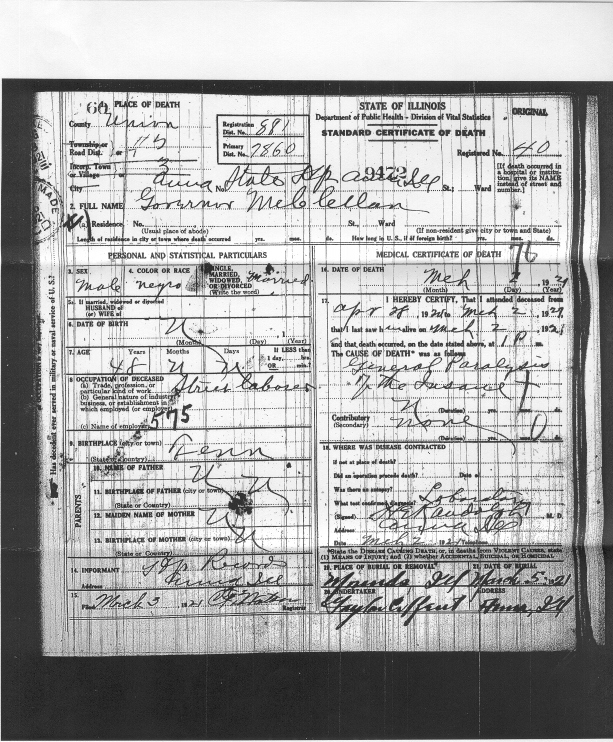 60 PLACE OF DEATH
County Union
Township or Road Dist.
Incorp. Town or Village
City Anna No. State Hp Anna Ills St.; Ward
Registration Dist. No. 881
Primary Dist. No. 7860
STATE OF ILLINOIS
Department of Public Health - Division of Vital Statistics
STANDARD CERTIFICATE OF DEATH
ORIGINAL
Registered No. 40
9472
[If death occurred in a hospital or institution, give its NAME instead of street and number.]
2. FULL NAME Governor McClellan
(a) Residence. No. St., Ward
(Usual place of abode) (If non-resident give city or town and State)
Length of residence in city or town where death occurred yrs. mos. ds. How long in U. S., if of foreign birth? yrs. mos. ds.
PERSONAL AND STATISTICAL PARTICULARS
3. SEX Male
4. COLOR OR RACE negro
5. SINGLE, MARRIED, WIDOWED, OR DIVORCED (Write the word) Married
5a. If married, widowed or divorced
HUSBAND of
(or) WIFE of
6. DATE OF BIRTH U
(Month) (Day) (Year)
7. AGE Years Months Days If LESS than 1 day, hrs.
48 U U OR min.
8. OCCUPATION OF DECEASED
(a) Trade, profession, or particular kind of work Street Laborer
(b) General nature of industry, business, or establishment in which employed (or employer)
575
(c) Name of employer
9. BIRTHPLACE (city or town) Tenn
(State or Country)
PARENTS
10. NAME OF FATHER U
11. BIRTHPLACE OF FATHER (city or town) U
(State or Country)
12. MAIDEN NAME OF MOTHER U
13. BIRTHPLACE OF MOTHER (city or town) U
(State or Country)
14. INFORMANT Hp Record
Address Anna Ill
15. Filed March 3 1921 Registrar
Has deceased ever served in military or naval service of U. S.?
MEDICAL CERTIFICATE OF DEATH
76
16. DATE OF DEATH Mch 2 1921
(Month) (Day) (Year)
17. I HEREBY CERTIFY, That I attended deceased from
Apr 28 1920 to Mch 2, 1921,
that I last saw him alive on Mch 2, 1921
and that death occurred, on the date stated above, at 1 P m.
The CAUSE OF DEATH* was as follows
General Paralysis
of The Insane
(Duration) yrs. mos. ds.
Contributory (Secondary) none
(Duration) yrs. mos. ds.
18. WHERE WAS DISEASE CONTRACTED
if not at place of death?
Did an operation precede death? Date of
Was there an autopsy?
What test confirmed diagnosis? Laboratory
(Signed) Randolph M. D.
Address Anna Ills
Date Mch 2 1921 Telephone
*State the DISEASE CAUSING DEATH; or, in deaths from VIOLENT CAUSES, state (1) MEANS OF INJURY; and (2) whether ACCIDENTAL, SUICIDAL, or HOMICIDAL.
19. PLACE OF BURIAL OR REMOVAL* 21. DATE OF BURIAL
Mounds Ill March 5 1921
20. UNDERTAKER ADDRESS
Anna, Ill